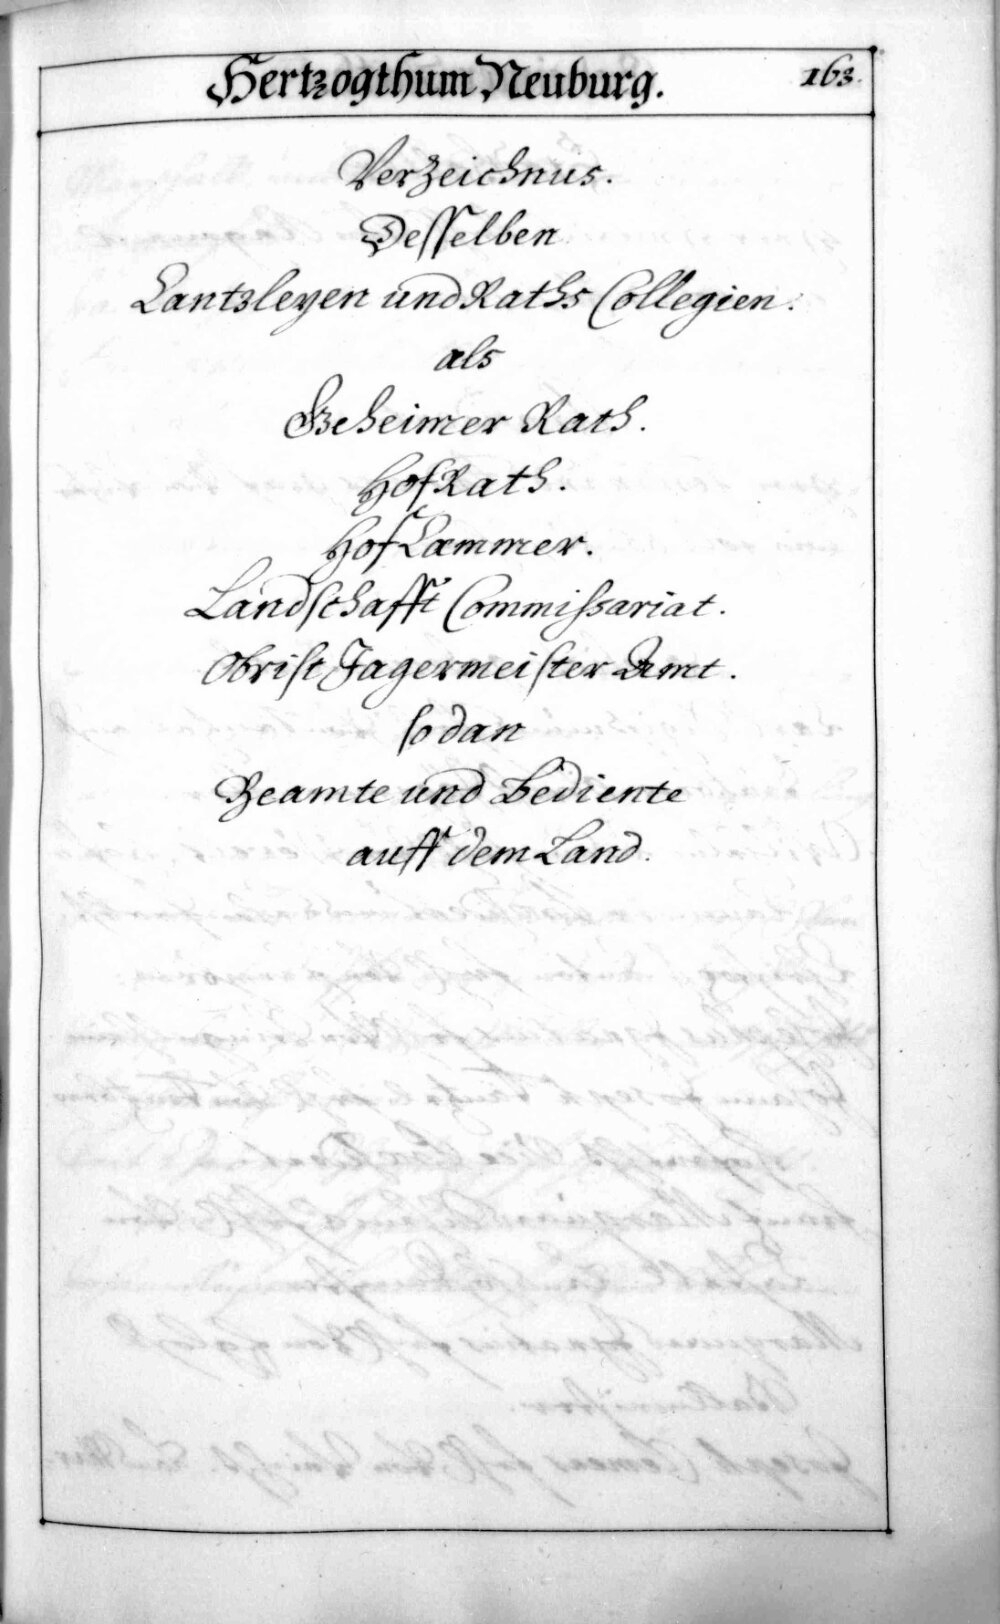 Hertzogthum Neuburg. 163.
Verzeichnus.
Desselben
Cantzleyen und Raths Collegien.
als
Geheimer Rath.
Hof Rath.
Hof Cammer.
Landschafft Commissariat.
Obrist Jagermeister Ambt.
sodan
Beamte und Bediente
auff dem Land.